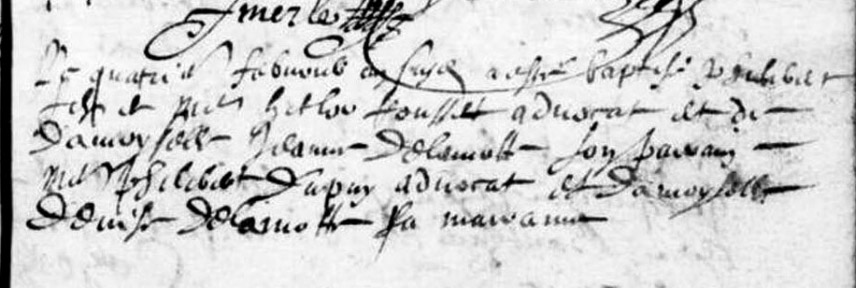 Jmerle
Le quatrie febvrier an susd a esté baptisé Philibert
filz de Me hector Rousset advocat et de
damoyselle Jeanne Delamotte son parain
Me Philibert Dupuy advocat et damoyselle
Denise Delamotte sa maranne